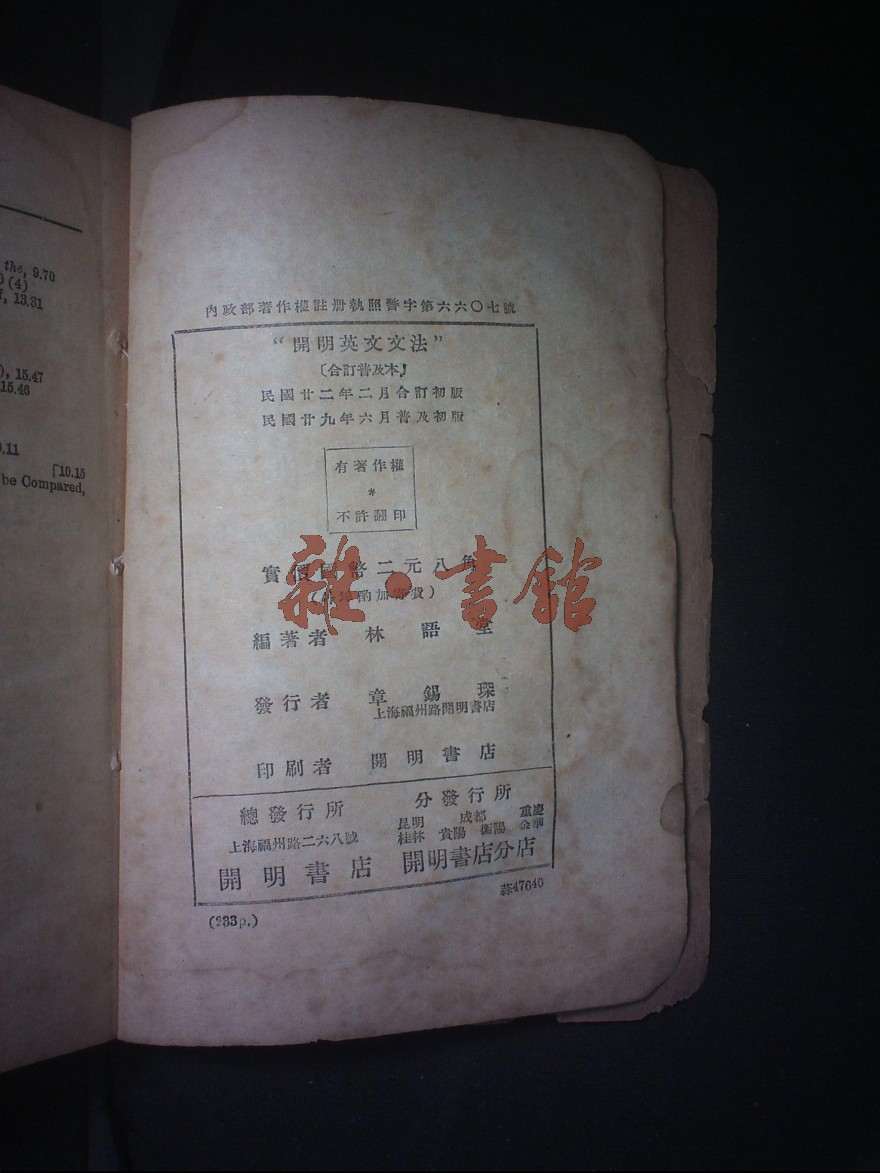 the, 9.70
(4)
13.31
15.47
15.46
9.11
[10.15
be Compared,
內政部著作權註册執照警字第六六〇七號
“開明英文文法”
〔合訂普及本〕
民國廿二年二月合訂初版
民國廿九年六月普及初版
有著作權
*
不許翻印
實價國幣二元八角
(外埠酌加寄費)
雜·書館
編著者 林語堂
發行者 章錫琛
上海福州路開明書店
印刷者 開明書店
總發行所
上海福州路二六八號
開明書店
分發行所
昆明 成都 重慶
桂林 貴陽 衡陽 金華
開明書店分店
47640
(233p.)